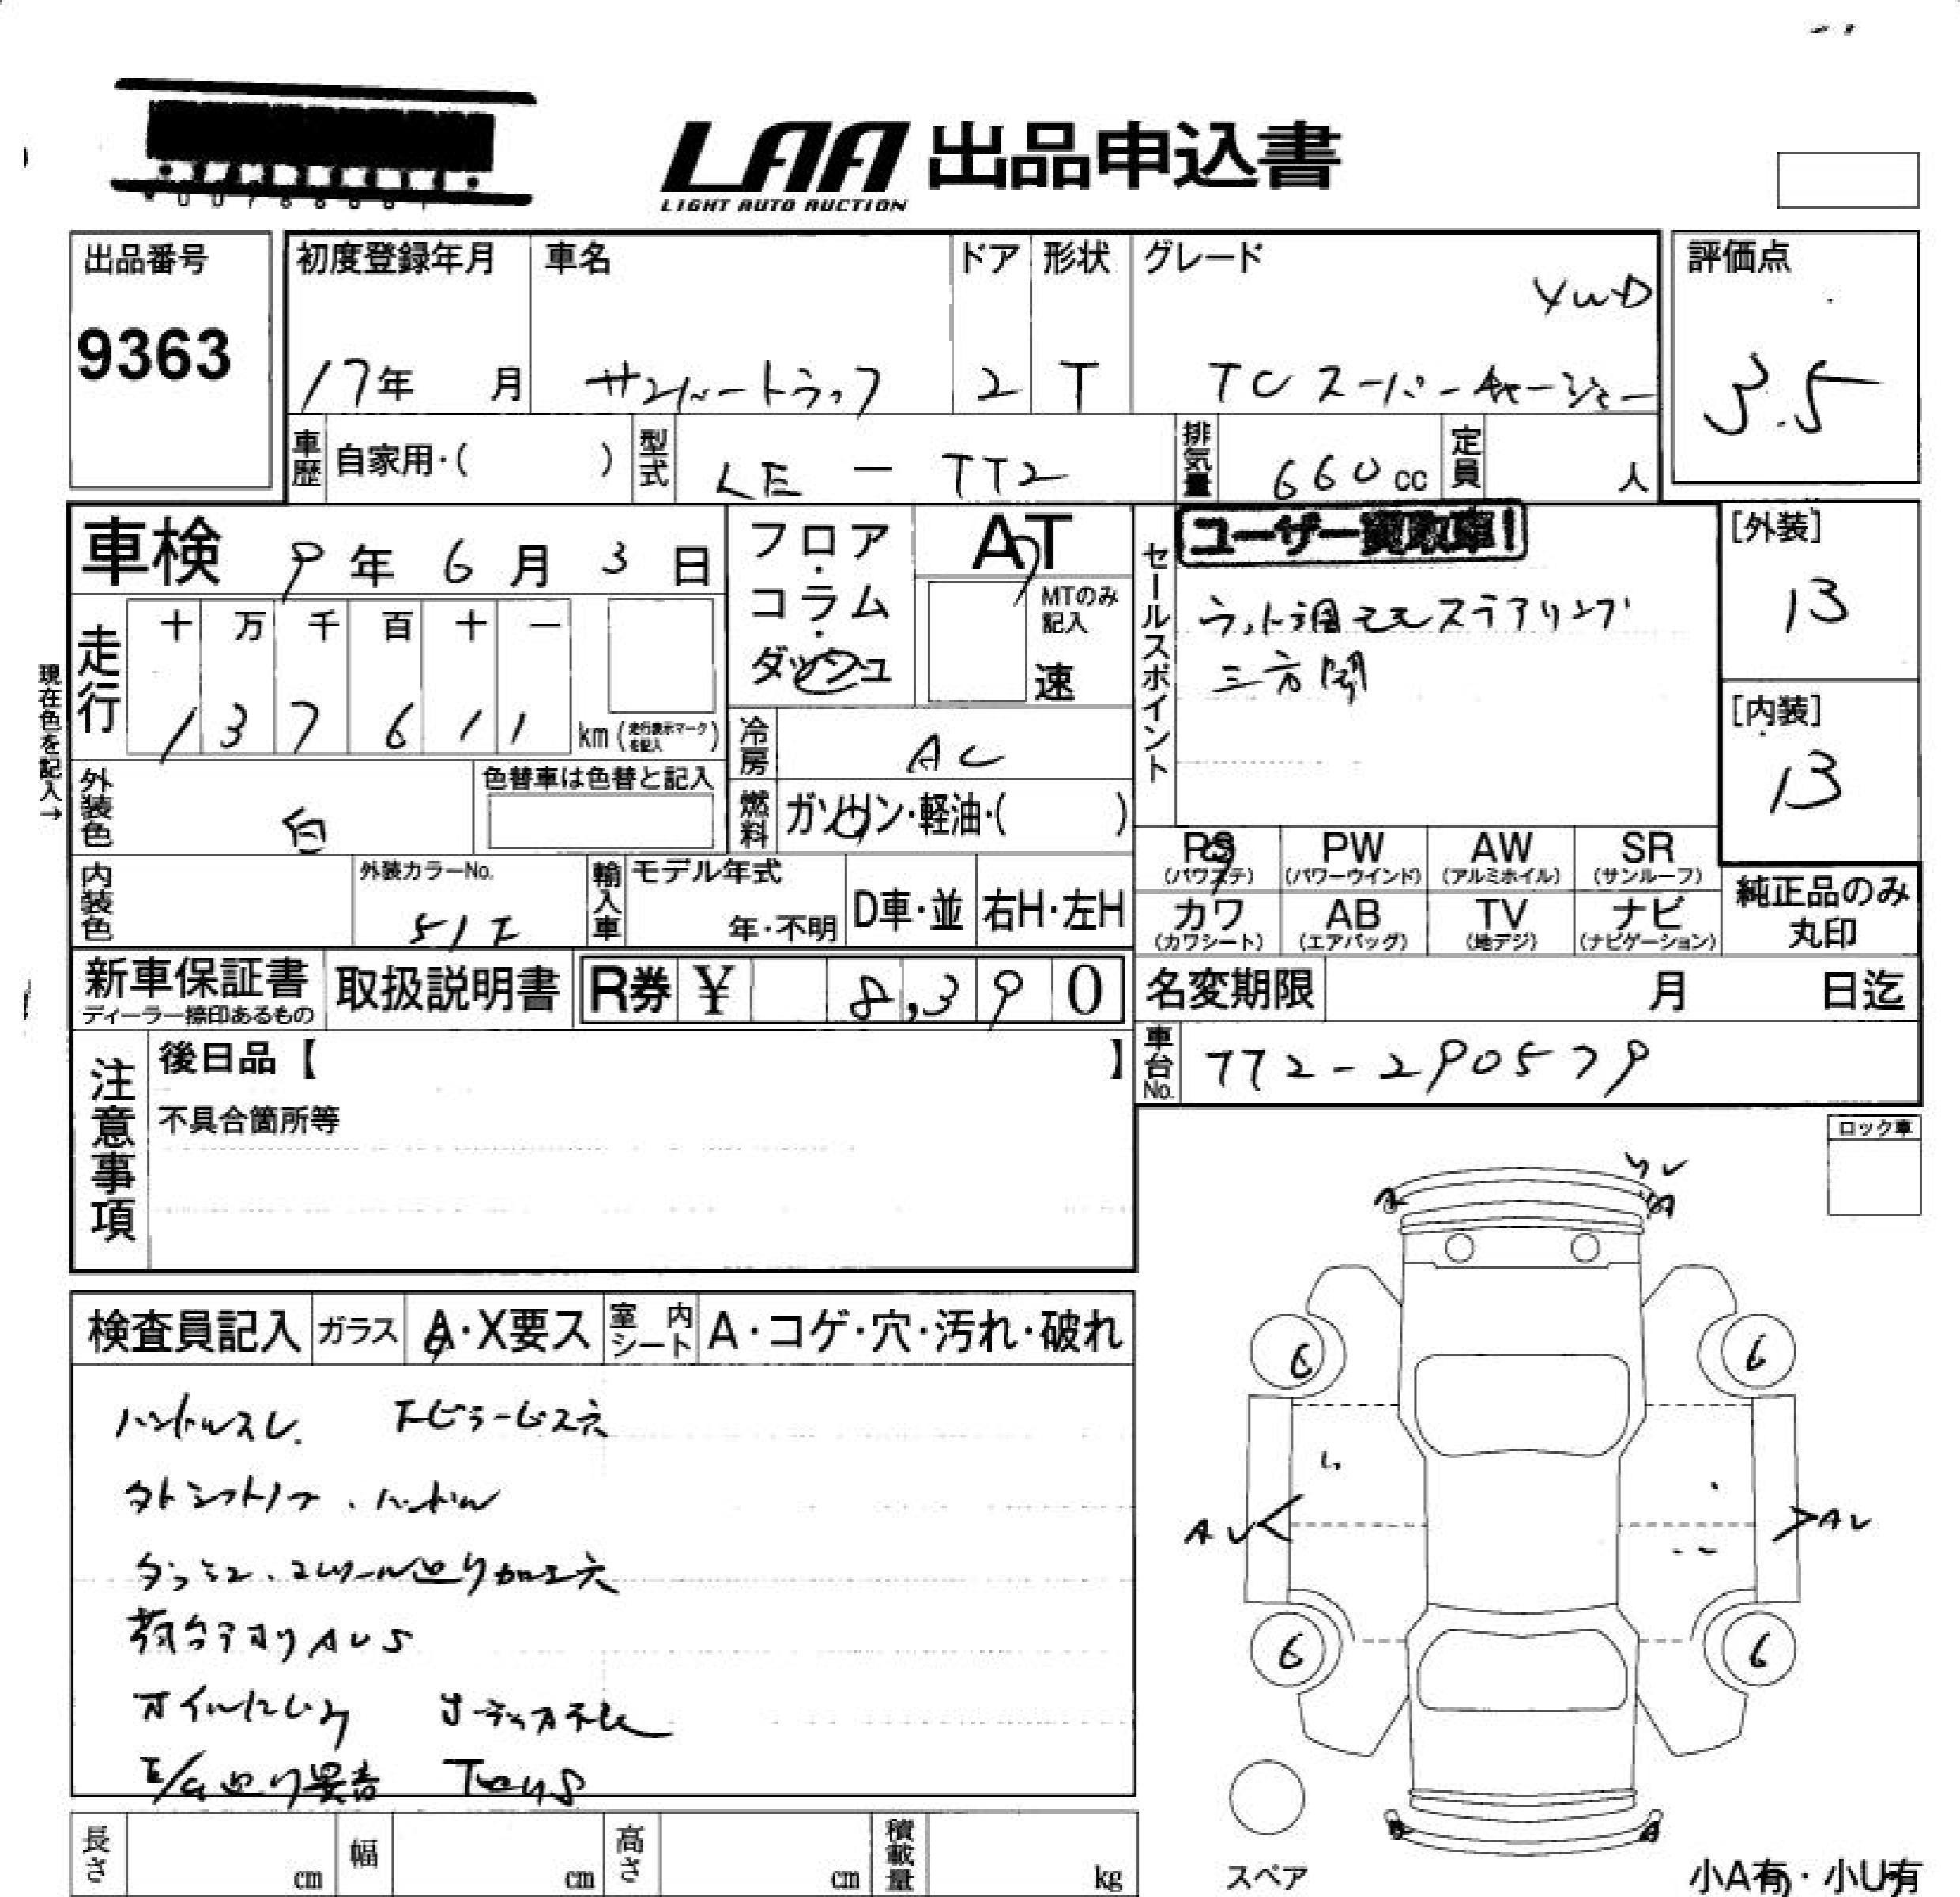 LAA 出品申込書
LIGHT AUTO AUCTION
出品番号
9363
初度登録年月
17年 月
車名
サンバートラック
ドア
2
形状
T
グレード
4WD
TC スーパーチャージャー
評価点
3.5
車歴 自家用・( )
型式 LE - TT2
排気量 660 cc
定員 人
車検 9年 6月 3日
フロア・コラム・ダッシュ
AT
MTのみ記入
速
セールスポイント
ユーザー買取車!
ウッド調 ステアリング
三方開
[外装]
13
[内装]
13
現在色を記入→
走行
十 万 千 百 十 一
1 3 7 6 1 1
km (走行表示マークを記入)
冷房 AC
外装色 白
色替車は色替と記入
燃料 ガソリン・軽油・( )
PS (パワステ)
PW (パワーウインド)
AW (アルミホイル)
SR (サンルーフ)
カワ (カワシート)
AB (エアバッグ)
TV (地デジ)
ナビ (ナビゲーション)
純正品のみ丸印
内装色
外装カラーNo.
51E
輸入車
モデル年式
年・不明
D車・並
右H・左H
新車保証書
ディーラー捺印あるもの
取扱説明書
R券 ¥ 8,390
名変期限 月 日迄
車台No. TT2-290579
注意事項
後日品【 】
不具合箇所等
ロック車
検査員記入
ガラス A・X要ス
室内シート A・コゲ・穴・汚れ・破れ
ハンドルスレ ピラービス穴
シフトノブ、ハンドル
ダッシュ、コンソール辺り加工穴
荷台アオリ AUS
オイルにじみ オーディオ欠
E/G辺り異音
A
A
AU
AU
6
6
6
6
スペア
小A有・小U有
長さ cm
幅 cm
高さ cm
積載量 kg